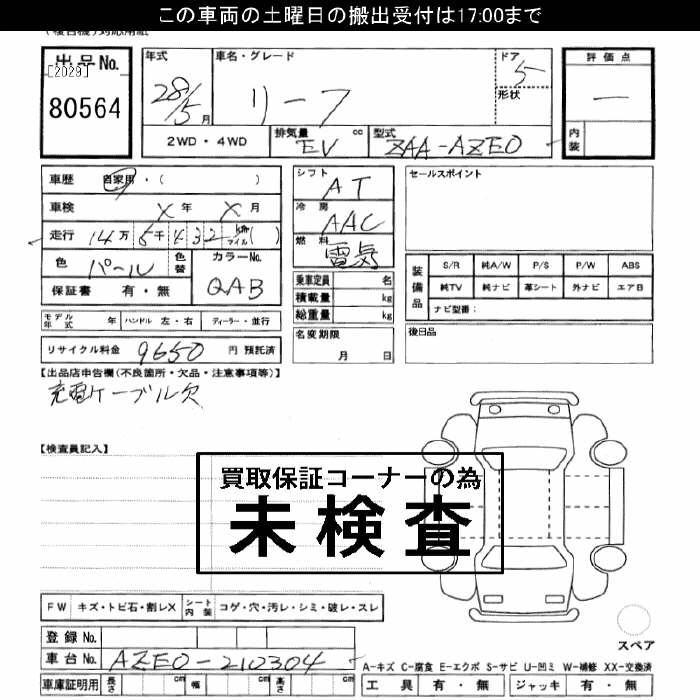 この車両の土曜日の搬出受付は17:00まで
出品No.
[2029]
80564
年式
28/5月
車名・グレード
リーフ
ドア
5
形状
評価点
—
内装
2WD・4WD
排気量 EV cc
型式 ZAA-AZE0
車歴 自家用・( )
車検 X年 X月
走行 14万5千432km マイル( )
色 パール
色替
カラーNo.
QAB
保証書 有・無
シフト
AT
冷房
AAC
燃料
電気
乗車定員 名
積載量 kg
総重量 kg
名変期限
月 日
セールスポイント
装備品
S/R 純A/W P/S P/W ABS
純TV 純ナビ 革シート 外ナビ エアB
ナビ型番：
後日品
モデル年式 年 ハンドル 左・右 ディーラー・並行
リサイクル料金 9650 円 預託済
【出品店申告欄(不良箇所・欠品・注意事項等)】
充電ケーブル欠
【検査員記入】
買取保証コーナーの為
未検査
FW キズ・トビ石・割レX シート内装 コゲ・穴・汚レ・シミ・破レ・スレ
登録No.
車台No. AZE0-210304
車庫証明用 長さ cm 幅 cm 高さ cm
スペア
A-キズ C-腐食 E-エクボ S-サビ U-凹ミ W-補修 XX-交換済
工具 有・無 ジャッキ 有・無